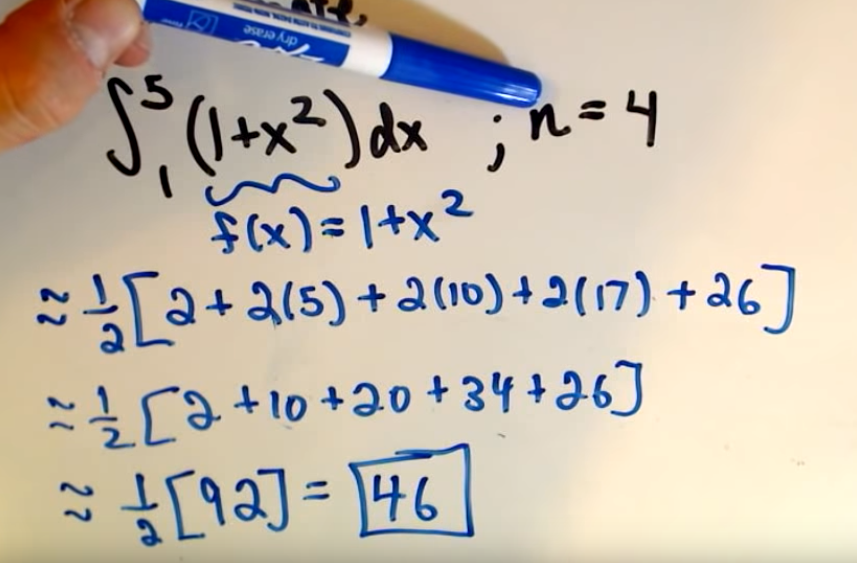 dry erase
∫₁⁵ (1+x²)dx ; n=4
f(x)=1+x²
≈ 1/2[2+2(5)+2(10)+2(17)+26]
≈ 1/2[2+10+20+34+26]
≈ 1/2[92]=46